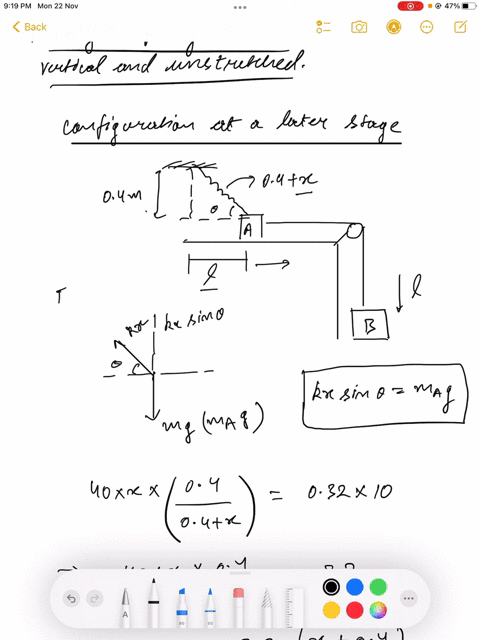 9:19 PM Mon 22 Nov
47%
Back
vertical and unstretched.
configuration at a later stage
0.4m
0.4+x
θ
A
l
l
B
kx
kx sin θ
θ
mg (mA g)
kx sin θ = mA g
40 × x × (0.4 / 0.4+x) = 0.32 × 10